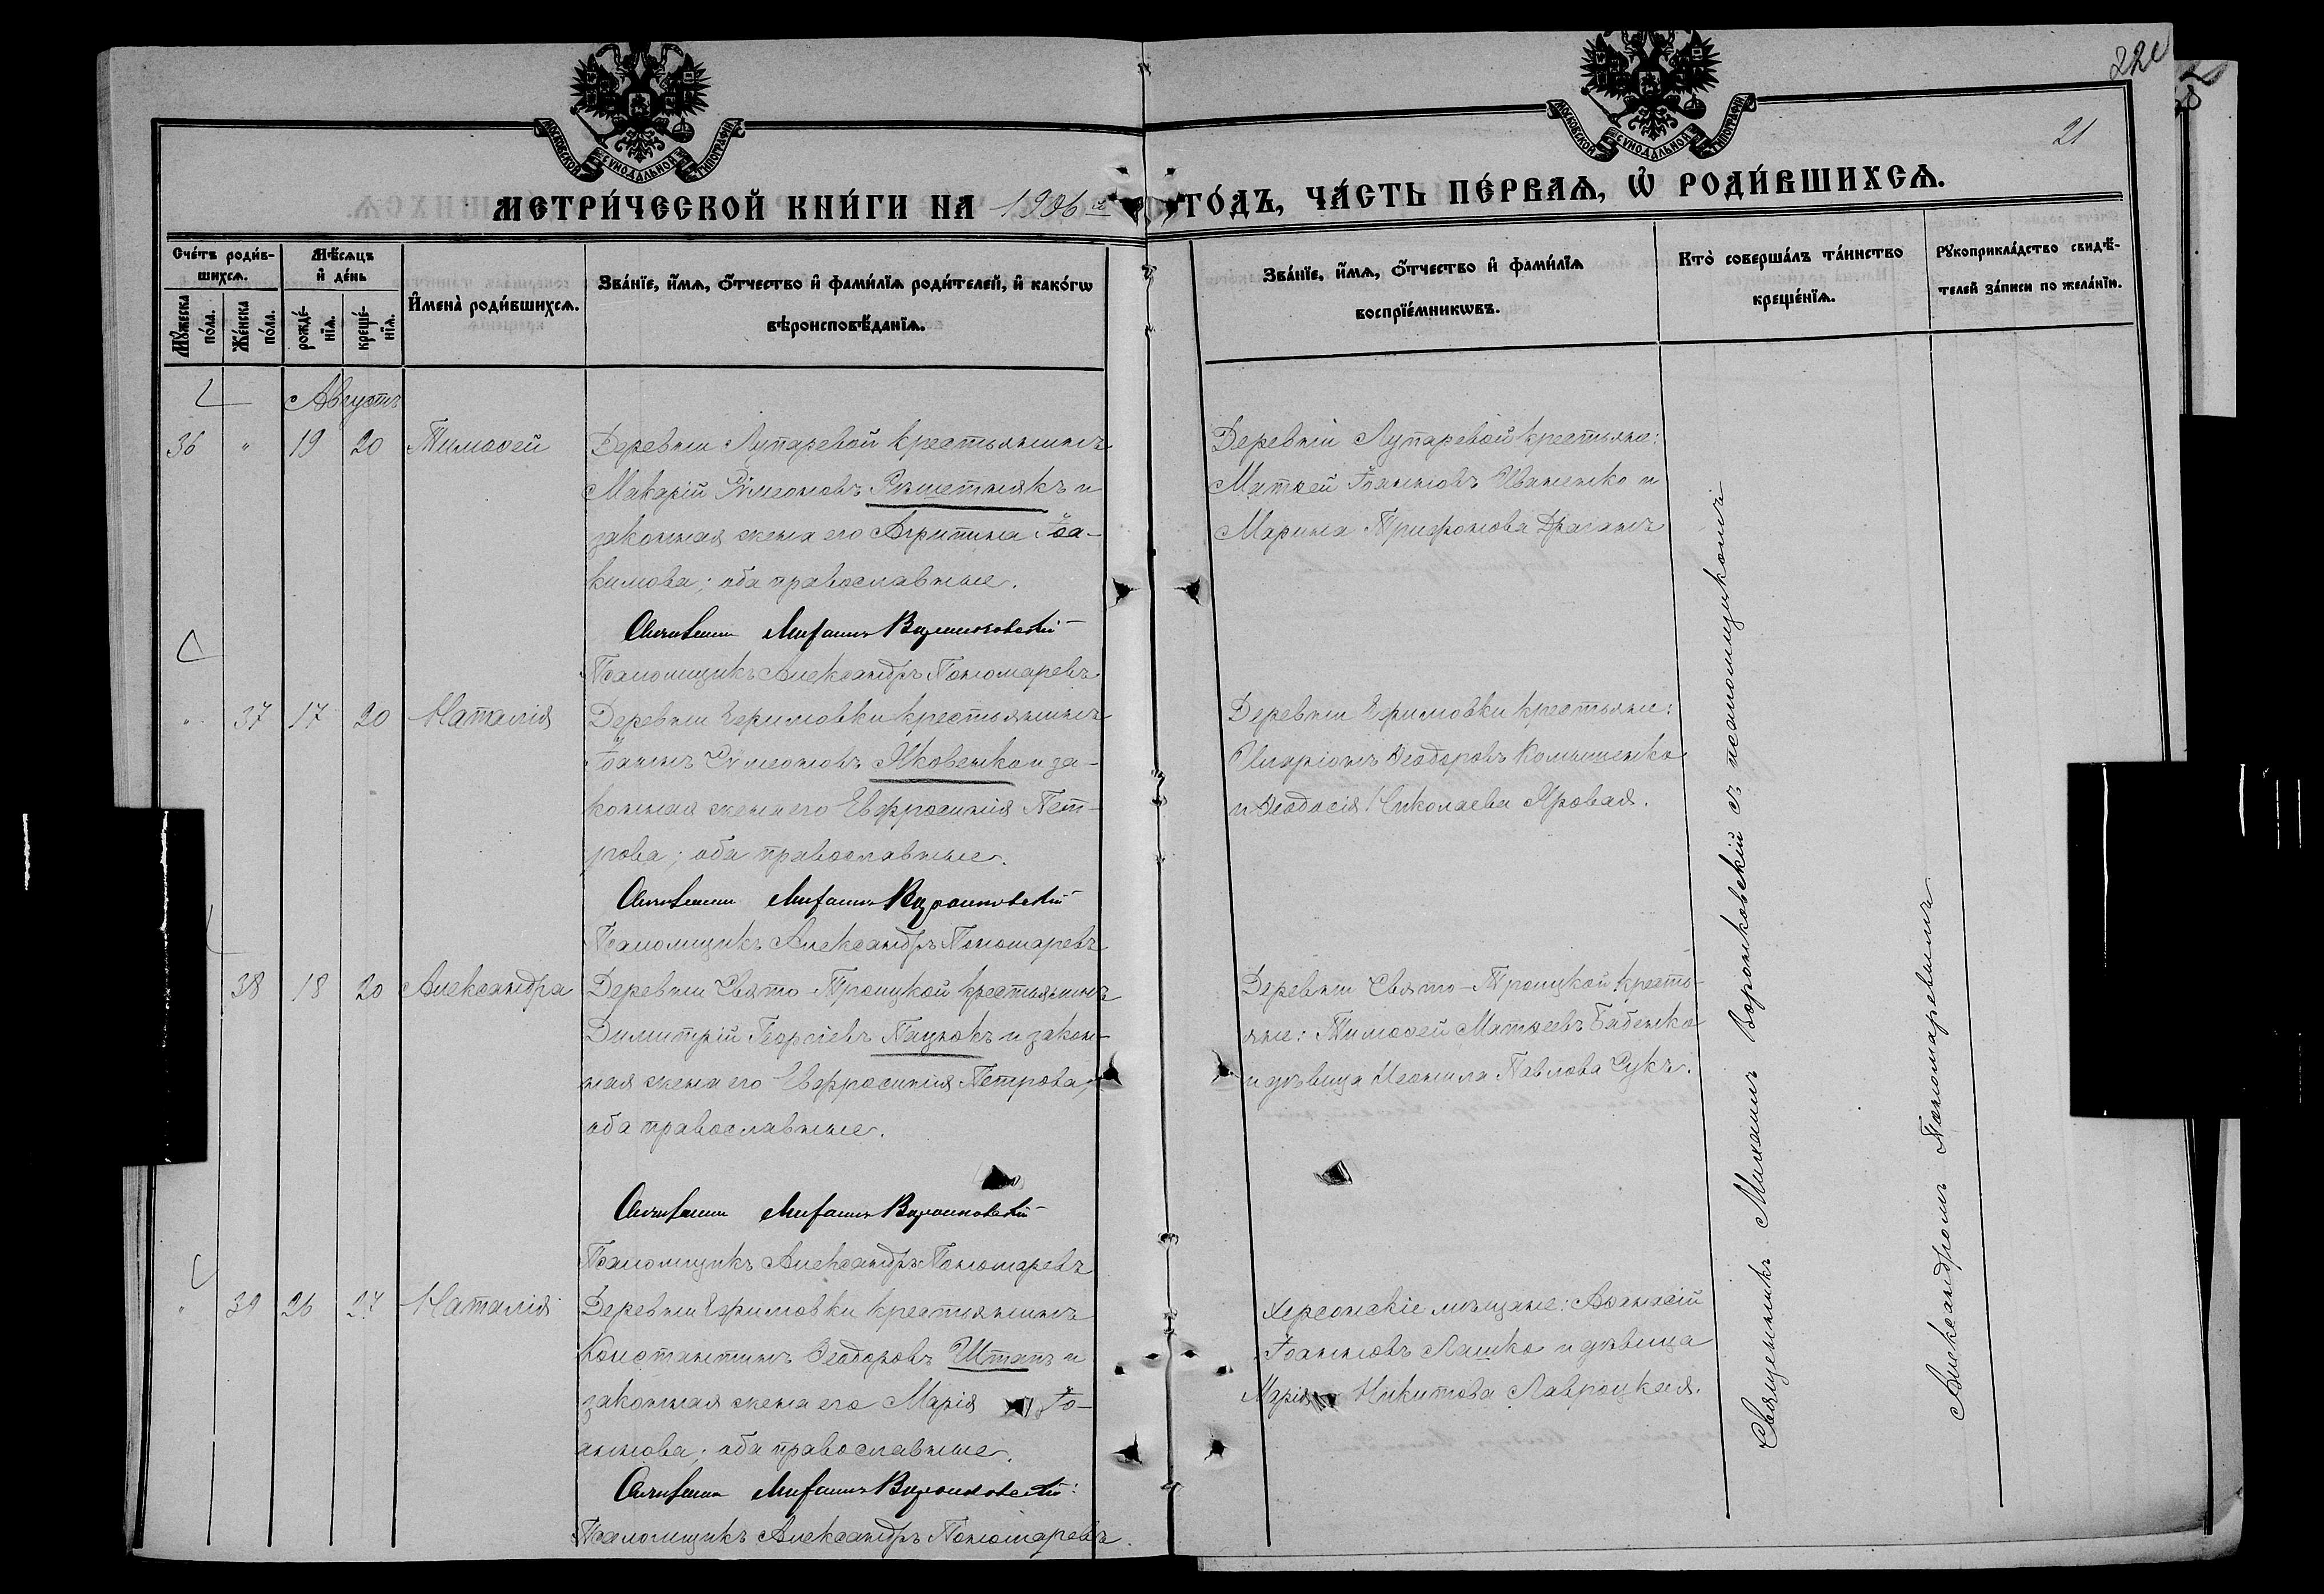 220
21
МОСКОВСКОЙ СѴНОДАЛЬНОЙ ТИПОГРАФІИ
МОСКОВСКОЙ СѴНОДАЛЬНОЙ ТИПОГРАФІИ
МЕТРИ́ЧЕСКОЙ КНИ́ГИ НА 1906 й ГО́ДЪ, ЧА́СТЬ ПЕ́РВАѦ, Ѡ҆ РОДИ́ВШИХСѦ.
Сче́тъ роди́в-
шихсѧ.
Мꙋ́жеска
по́ла.
Же́нска
по́ла.
Мѣ́сѧцъ
и҆ де́нь
рожде́-
нїѧ.
креще́-
нїѧ.
И҆мена̀ роди́вшихсѧ.
Зва́нїе, и҆́мѧ, ѻ҆́тчество и҆ фами́лїѧ роди́телей, и҆ како́гѡ
вѣроисповѣ́данїѧ.
Зва́нїе, и҆́мѧ, ѻ҆́тчество и҆ фами́лїѧ
воспрїе́мникѡвъ.
Кто̀ соверша́лъ та́инство
креще́нїѧ.
Рꙋкоприкла́дство свидѣ́-
телей за́писи по жела́нїю.
Августъ
36 " 19 20 Тимоѳей
Деревни Лупаревой крестьянинъ
Макарій Сѵмеоновъ Решетнякъ и
законная жена его Агрипина Іоа-
кимова; оба православные.
Священникъ Михаилъ Воронковскій
Псаломщикъ Александръ Пономаревъ
Деревни Лупаревой крестьяне:
Матѳей Іоанновъ Иваненко и
Марина Трифонова Драганъ
" 37 17 20 Наталія
Деревни Ефимовки крестьянинъ
Іоаннъ Сѵмеоновъ Яковенко и за-
конная жена его Евфросинія Пет-
рова; оба православные.
Священникъ Михаилъ Воронковскій
Псаломщикъ Александръ Пономаревъ
Деревни Ефимовки крестьяне:
Иларіонъ Ѳеодоровъ Комышенко
и Ѳеодосія Николаева Яровая.
38 18 20 Александра
Деревни Свято-Троицкой крестьянинъ
Димитрій Георгіевъ Пацюкъ и закон-
ная жена его Евфросинія Петрова,
оба православные.
Священникъ Михаилъ Воронковскій
Псаломщикъ Александръ Пономаревъ
Деревни Свято-Троицкой кресть-
яне: Тимоѳей Матѳеевъ Бабенко
и дѣвица Неонила Павлова Сукъ.
" 39 26 27 Наталія
Деревни Ефимовки крестьянинъ
Константинъ Ѳеодоровъ Штапъ и
законная жена его Марія Іо-
аннова; оба православные.
Священникъ Михаилъ Воронковскій
Псаломщикъ Александръ Пономаревъ.
Херсонскіе мѣщане: Аѳанасій
Іоанновъ Лашко и дѣвица
Марія Никитова Лавроцкая.
Священникъ Михаилъ Воронковскій съ псаломщикомъ
Александромъ Пономаревымъ